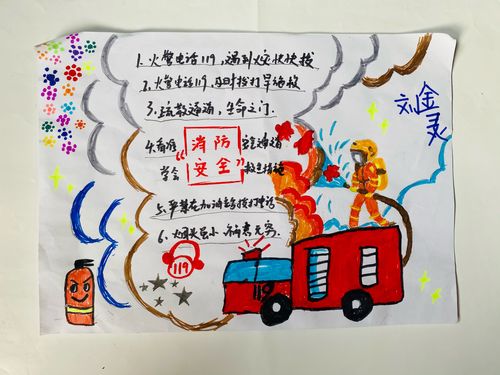 1. 火警电话119,遇到火灾快快拨
2. 火警电话119,及时拨打早谒救
3. 疏散通道,生命之门
4. 看准
安全通道
消防
安全
学会
救生措施
5. 严禁在加油站拨打电话
6. 烟头虽小,祸害无穷.
119
119
刘金灵